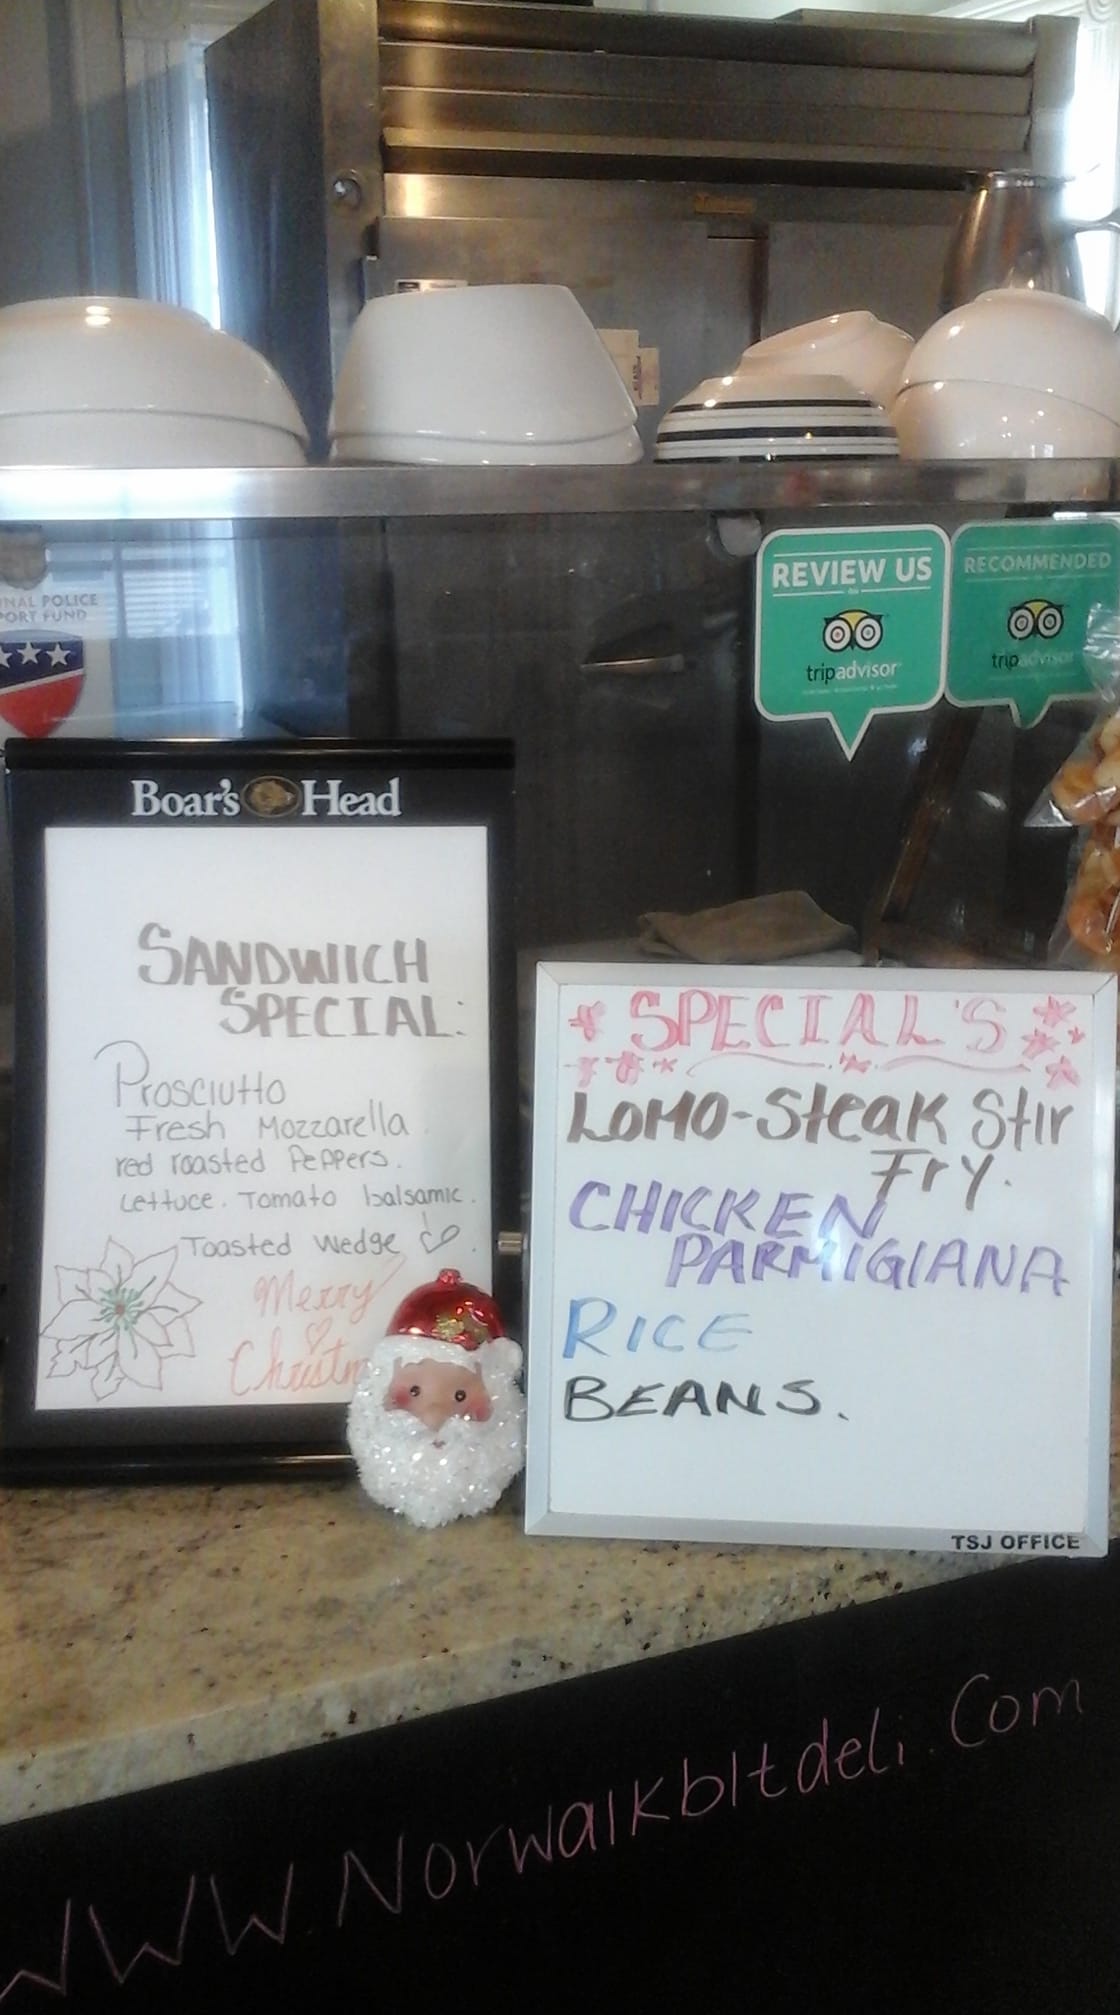 REVIEW US
on
tripadvisor
RECOMMENDED
on
tripadvisor
NAL POLICE
PORT FUND
Boar's Head
SANDWICH
SPECIAL:
Prosciutto
Fresh Mozzarella.
red roasted Peppers.
Lettuce. Tomato balsamic.
Toasted wedge
Merry
Christm
SPECIAL'S
LOMO-Steak Stir
Fry.
CHICKEN
PARMIGIANA
RICE
BEANS.
TSJ OFFICE
WWW.Norwalkbltdeli.Com